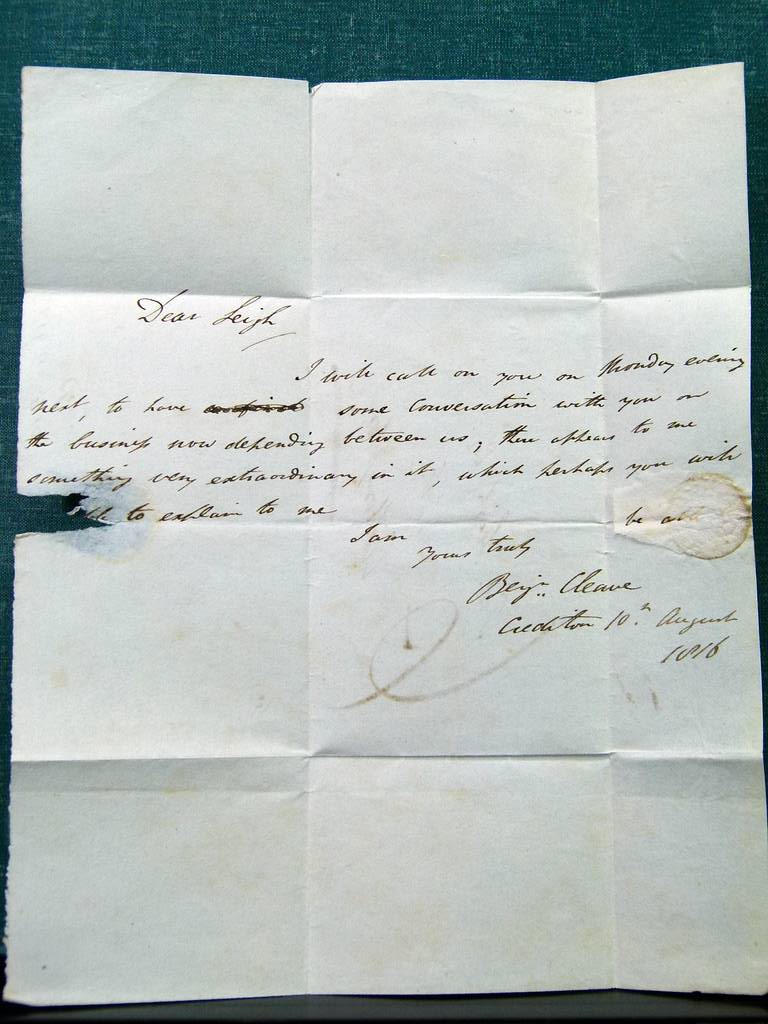 Dear Leigh
I will call on you on Monday evening
next, to have some Conversation with you on
the business now depending between us; there appears to me
something very extraordinary in it, which perhaps you will
to explain to me
be a
I am
yours truly
Benj.n Cleave
Crediton 10.th August
1816